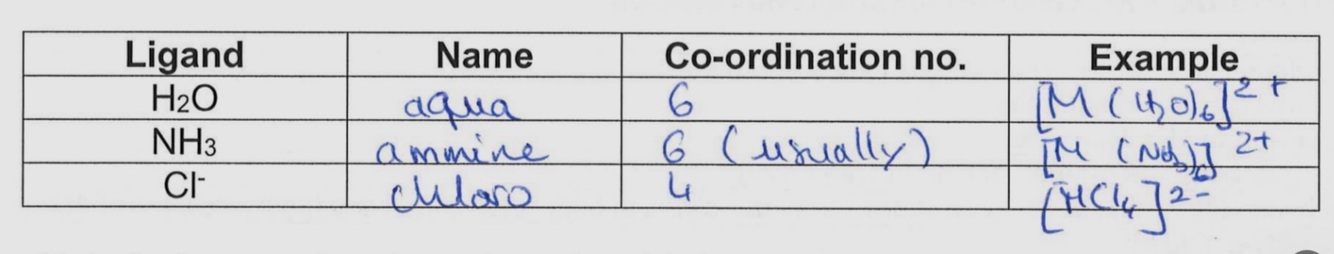 Ligand Name Co-ordination no. Example
H2O aqua 6 [M(H2O)6]2+
NH3 ammine 6 (usually) [M(NH3)6]2+
Cl- chloro 4 [MCl4]2-